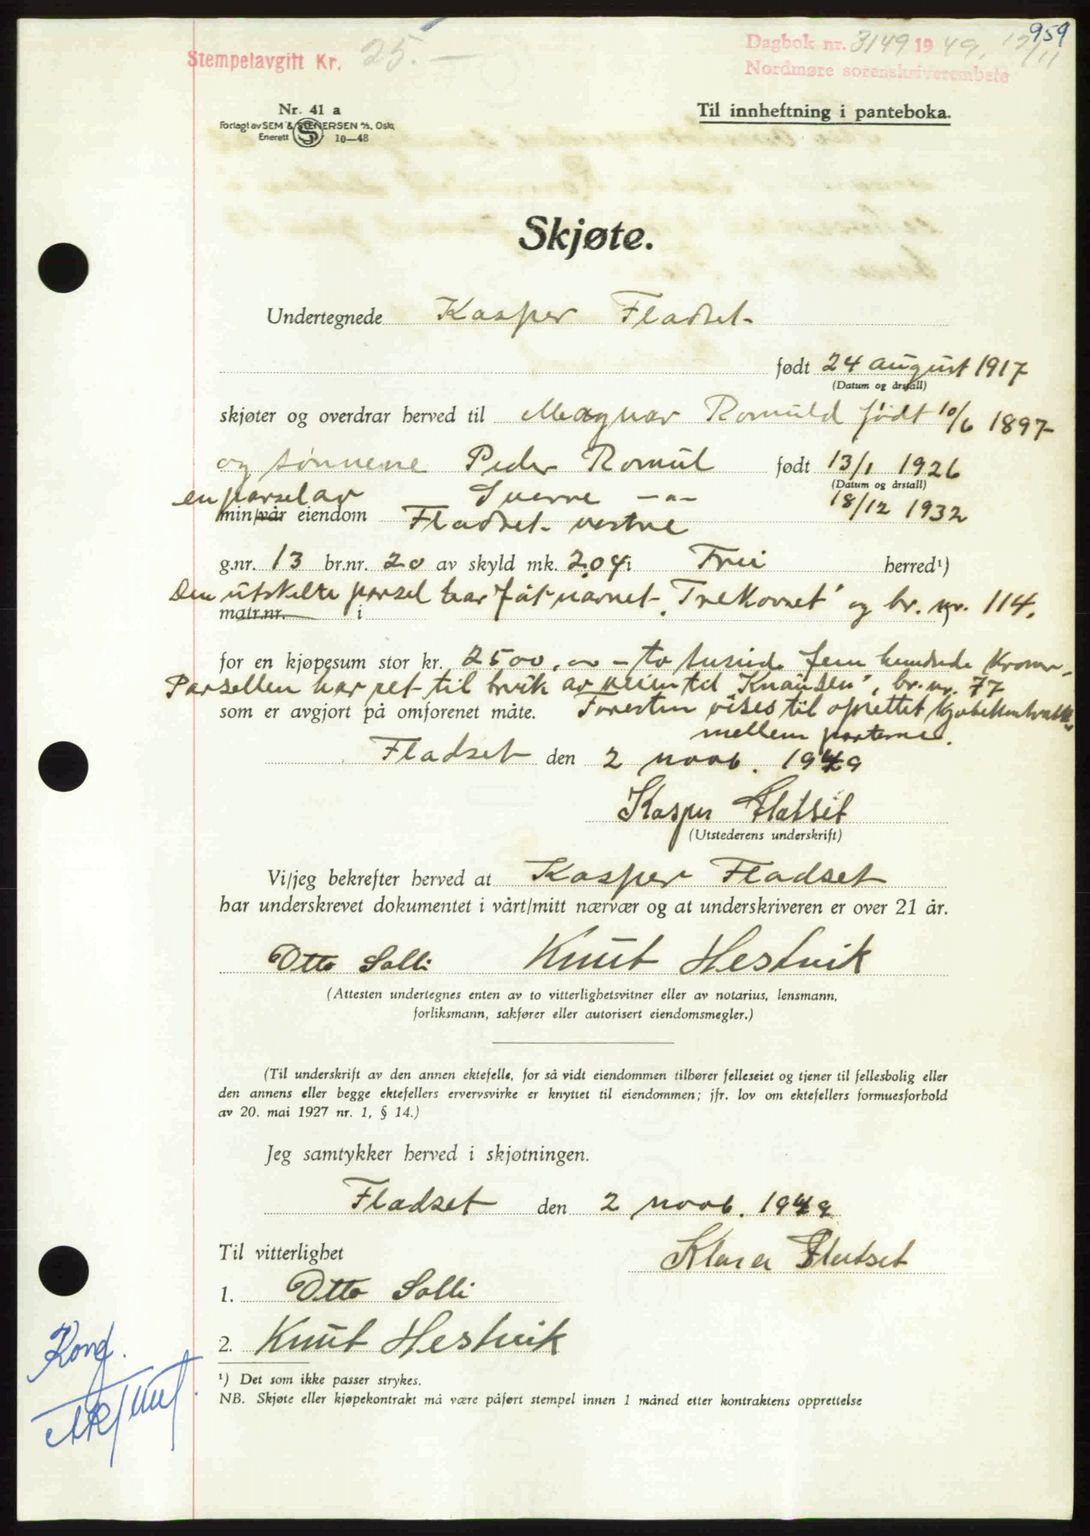 959
Stempelavgift Kr. 25.—
Dagbok nr. 3149 1949. 12/11
Nordmøre sorenskriverembete
Nr. 41 a
Forlagt av SEM & STENERSEN A/S, Oslo
Enerett 10—48
Til innheftning i panteboka.
Skjøte.
Undertegnede Kasper Fladset
født 24 august 1917
(Datum og årstall)
skjøter og overdrar herved til Magnar Romuld født 10/6 1897
og sønnene Peder Romul født 13/1 1926
(Datum og årstall)
en parsel av Sverre —"— 18/12 1932
min/vår eiendom Fladset vestre
g.nr. 13 br.nr. 20 av skyld mk. 2,04 i Frei herred¹)
Den utskilte parsel har fåt navnet „Trekovret" og br. nr. 114.
matr.nr. i ¹)
for en kjøpesum stor kr. 2500,00 — to tusind fem hundrede kroner
Parsellen har ret til bruk av veien til „Knausen", br. nr. 77
som er avgjort på omforenet måte. Foresten vises til oprettet kjøbekontrakt
mellem parterne.
Fladset den 2 novb. 1949
Kasper Flatset
(Utstederens underskrift)
Vi/jeg bekrefter herved at Kasper Fladset
har underskrevet dokumentet i vårt/mitt nærvær og at underskriveren er over 21 år.
Otto Solli Knut Hestvik
(Attesten undertegnes enten av to vitterlighetsvitner eller av notarius, lensmann,
forliksmann, sakfører eller autorisert eiendomsmegler.)
(Til underskrift av den annen ektefelle, for så vidt eiendommen tilhører felleseiet og tjener til fellesbolig eller
den annens eller begge ektefellers ervervsvirke er knyttet til eiendommen; jfr. lov om ektefellers formuesforhold
av 20. mai 1927 nr. 1, § 14.)
Jeg samtykker herved i skjøtningen.
Fladset den 2 novb. 1949
Til vitterlighet Klara Flatset
1. Otto Solli
2. Knut Hestvik
Konf.
¹) Det som ikke passer strykes.
NB. Skjøte eller kjøpekontrakt må være påført stempel innen 1 måned etter kontraktens opprettelse